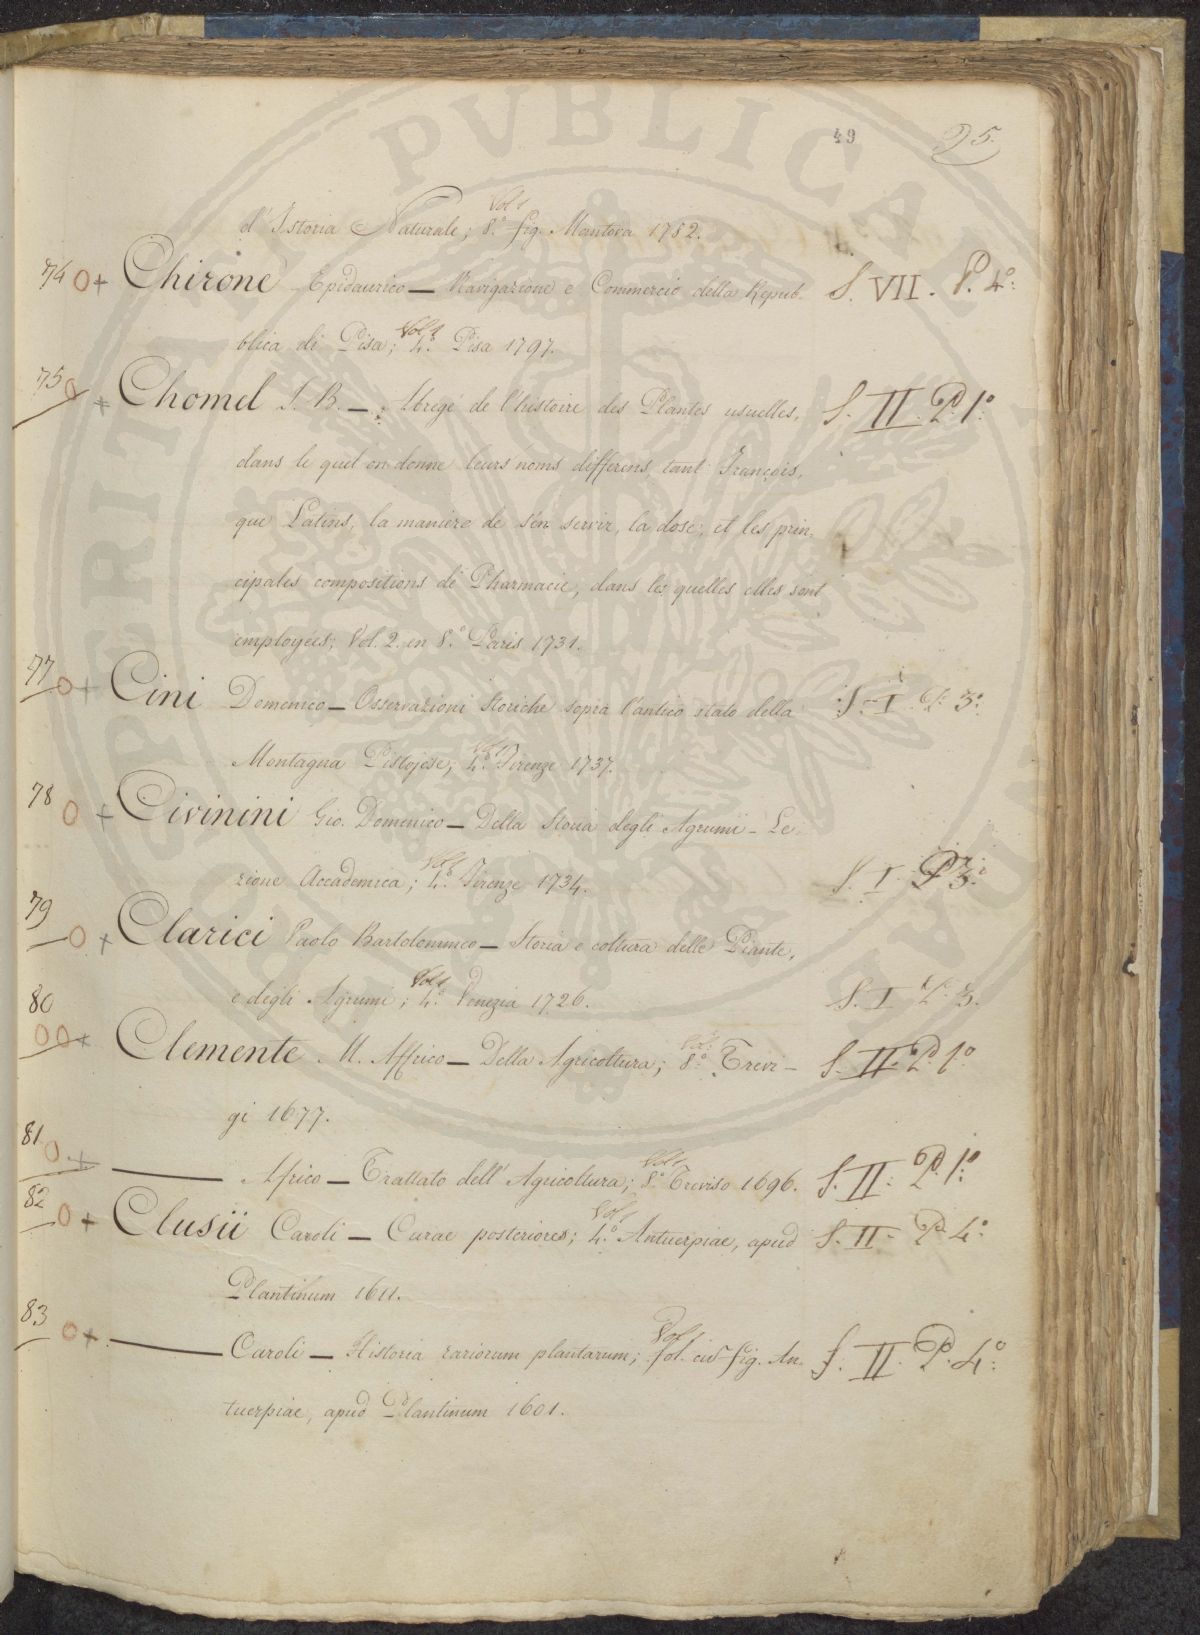 49 25.
d'Istoria Naturale; Vol 1 8.º fig. Mantova 1782.
74 O+ Chirone Epidaurico — Navigazione e Commercio della Repub- S. VII. P. 4º:
blica di Pisa; Vol 1 4.º Pisa 1797.
75 O + Chomel J. B. — Abregé de l'histoire des Plantes usuelles, S. II. P. 1º
dans le quel on donne leurs noms differens, tant François,
que Latins, la maniere de s'en servir, la dose, et les prin-
cipales compositions de Pharmacie, dans les quelles elles sont
employées; Vol. 2. en 8.º Paris 1731.
77 O + Cini Domenico — Osservazioni Storiche sopra l'antico stato della S. I P. 3º
Montagna Pistojese; Vol 1 4.º Firenze 1737.
78 O + Civinini Gio. Domenico — Della Storia degli Agrumi - Le-
zione Accademica; Vol 1 4.º Firenze 1734. S. I. P. 3º
79 O + Clarici Paolo Bartolommeo — Storia e coltura delle Piante,
e degli Agrumi; Vol 1 4.º Venezia 1726. S. I P. 3.
80 OO+ Clemente M. Affrico — Della Agricoltura; Vol: 8.º Trevi- S. II. P. 1º
gi 1677.
81 O + — Africo — Trattato dell' Agricoltura; Vol 1 8.º Treviso 1696. S. II: P. 1º:
82 O + Clusii Caroli — Curae posteriores; Vol 1 4.º Antuerpiae, apud S. II - P. 4º:
Plantinum 1611.
83 O + — Caroli — Historia rariorum plantarum; Vol 1 fol. cuɱ fig. An- S. II. P. 4º:
tuerpiae, apud Plantinum 1601.
PUBLICA